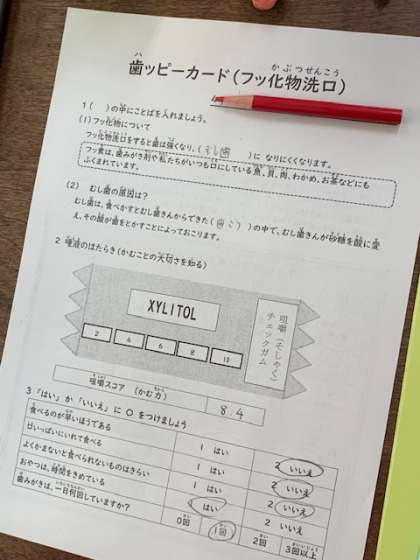 歯ッピーカード(フッ化物洗口)
1( )の中にことばを入れましょう。
(1)フッ化物について
フッ化物洗口をすると歯は強くなり、(むし歯)に なりにくくなります。
フッ素は、歯みがき剤や私たちがいつも口にしている魚、貝、肉、わかめ、お茶などにも
ふくまれています。
(2) むし歯の原因は?
むし歯は、食べかすとむし歯きんからできた(歯こう)の中で、むし歯きんが砂糖を酸に変
え、その酸が歯をとかすことによっておこります。
2 唾液のはたらき(かむことの大切さを知る)
XYLITOL
2 4 6 8 10
咀嚼(そしゃく)
チェックガム
咀嚼スコア (かむ力) 8.4
3「はい」か「いいえ」に ○ をつけましょう
食べるのが早いほうである 1 はい 2 いいえ
口いっぱいにいれて食べる 1 はい 2 いいえ
よくかまないと食べられないものはきらい 1 はい 2 いいえ
おやつは、時間をきめている 1 はい 2 いいえ
歯みがきは、一日何回していますか? 0回 1回 2回 3回以上